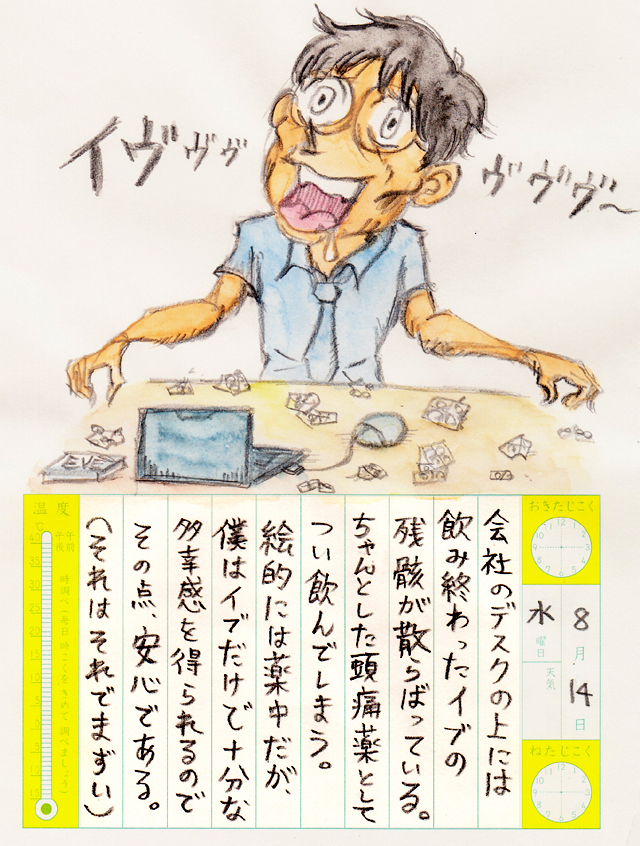 イヴヴヴ
ヴヴヴ～
EVE
会社のデスクの上には
飲み終わったイブの
残骸が散らばっている。
ちゃんとした頭痛薬として
つい飲んでしまう。
絵的には薬中だが、
僕はイブだけで十分な
多幸感を得られるので
その点、安心である。
（それはそれでまずい）
おきたじこく
12 1 2 3 4 5 6 7 8 9 10 11
8月14日
水曜日
天気
ねたじこく
12 1 2 3 4 5 6 7 8 9 10 11
温度
℃
午前
午後
時調べ（毎日時こくをきめて調べましょう）
40
35
30
25
20
15
10
5
0
5
10
15